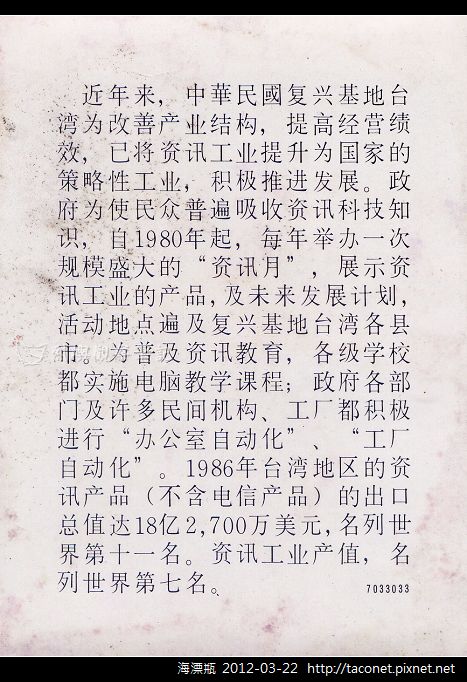 近年来，中華民國复兴基地台
湾为改善产业结构，提高经营绩
效，已将资讯工业提升为国家的
策略性工业，积极推进发展。政
府为使民众普遍吸收资讯科技知
识，自1980年起，每年举办一次
规模盛大的“资讯月”，展示资
讯工业的产品，及未来发展计划，
活动地点遍及复兴基地台湾各县
市。为普及资讯教育，各级学校
都实施电脑教学课程；政府各部
门及许多民间机构、工厂都积极
进行“办公室自动化”、“工厂
自动化”。1986年台湾地区的资
讯产品（不含电信产品）的出口
总值达18亿2,700万美元，名列世
界第十一名。资讯工业产值，名
列世界第七名。
7033033
海漂瓶 2012-03-22 http://taconet.pixnet.net